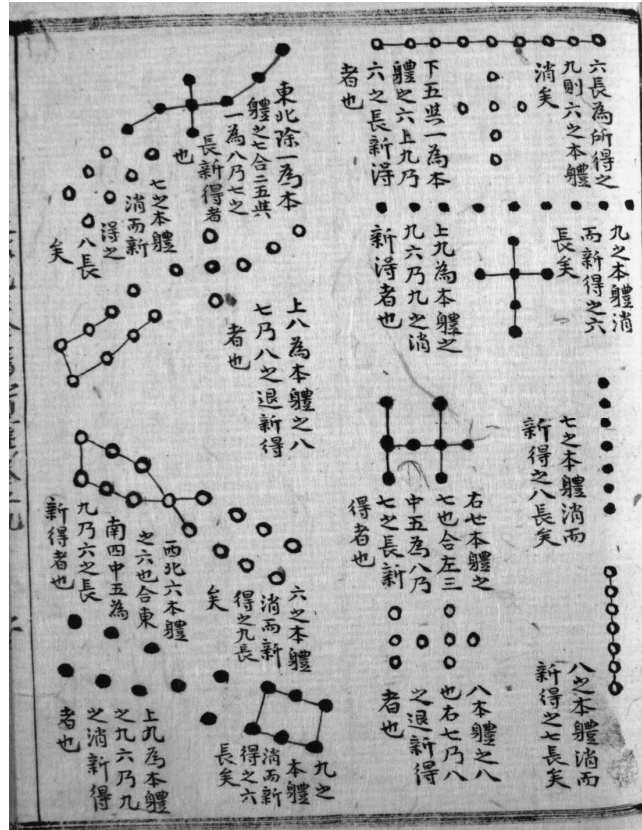 六長為所得之
九則六之本軆
消矣
下五與一為本
軆之六上九乃
六之長新得
者也
九之本軆消
而新得之六
長矣
上九為本軆之
九六乃九之消
新得者也
七之本軆消而
新得之八長矣
右七本軆之
七也合左三
中五為八乃
七之長新
得者也
八之本軆消而
新得之七長矣
八本軆之八
也右七乃八
之退新得
者也
東北除一為本
軆之七合二五與
一為八乃七之
長新得者
也
七之本軆
消而新
得之
八長
矣
上八為本軆之八
七乃八之退新得
者也
西北六本軆
之六也合東
南四中五為
九乃六之長
新得者也
六之本軆
消而新
得之九長
矣
九之
本軆
消而新
得之六
長矣
上九為本軆
之九六乃九
之消新得
者也